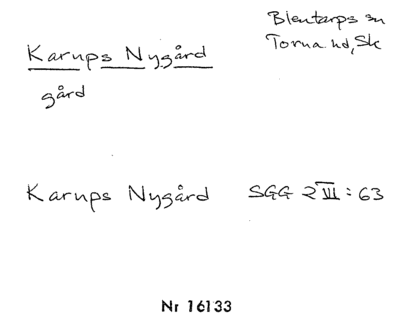 Karups Nygård
gård
Blentarps sn
Torna hd, Sk
Karups Nygård SGG 2 VII : 63
Nr 16133